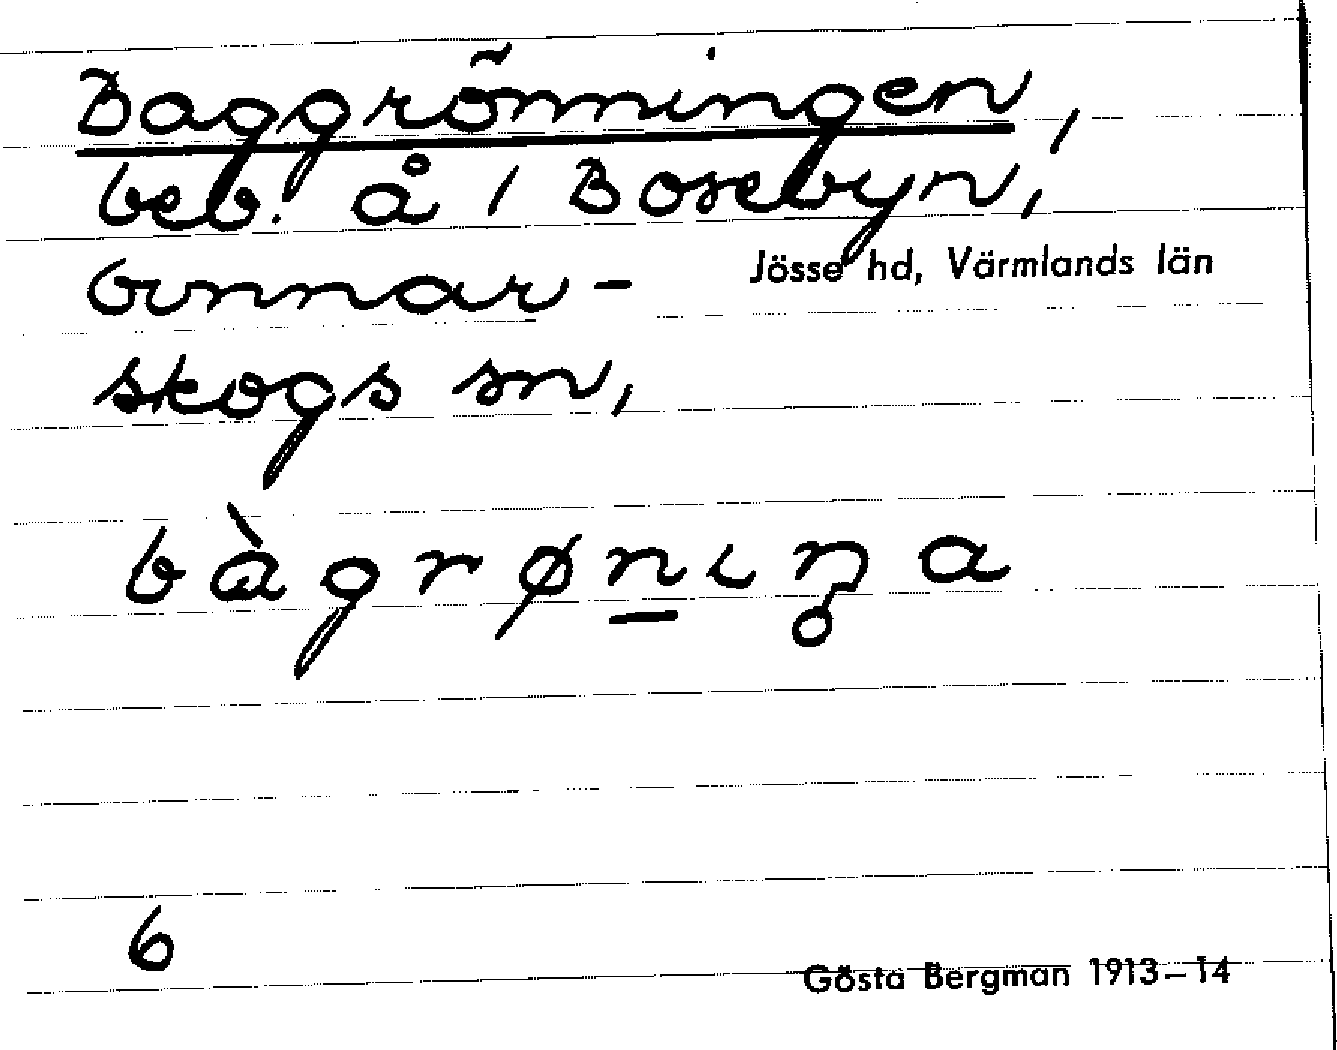 Baggrönningen,
beb. å 1 Bosebyn,
Gunnar-
Jösse hd, Värmlands län
skogs sn,
bàgrøn̲ɩŋ̥a
6
Gösta Bergman 1913–14